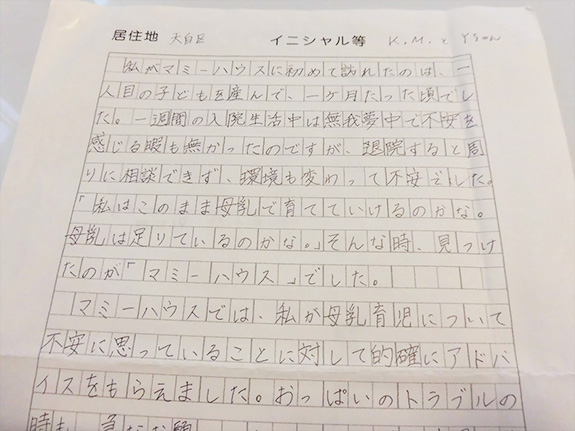 居住地 太白区 イニシャル等 K.M.と Yちゃん
私がマミーハウスに初めて訪れたのは、一
人目の子どもを産んで、一ヶ月たった頃でし
た。一週間の入院生活中は無我夢中で不安を
感じる暇も無かったのですが、退院すると周
りに相談できず、環境も変わって不安でした。
「私はこのまま母乳で育てていけるのかな。
母乳は足りているのかな。」そんな時、見つけ
たのが「マミーハウス」でした。
マミーハウスでは、私が母乳育児について
不安に思っていることに対して的確にアドバ
イスをもらえました。おっぱいのトラブルの
時も、急な